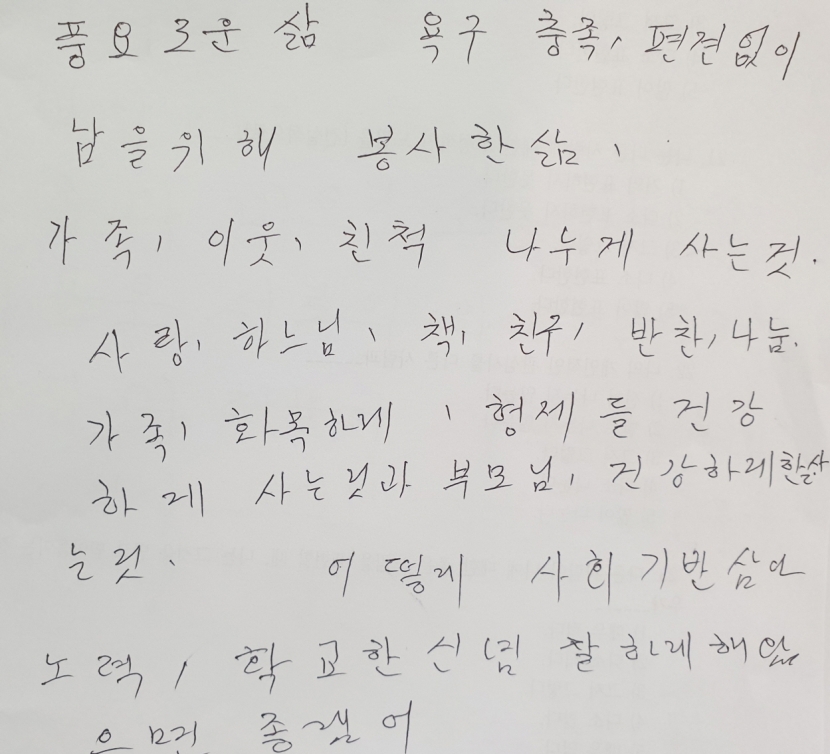 풍요로운 삶 욕구 충족, 편견없이
남을위해 봉사한삶,
가족, 이웃, 친척 나누게 사는것.
사랑, 하느님, 책, 친구, 반찬, 나눔.
가족, 화목하게, 형제들 건강
하게 사는것과 부모님, 건강하게한살사
는것. 어떻게 사회기반삼아
노력, 학교한신념 잘하게해있
으면 좋겠어